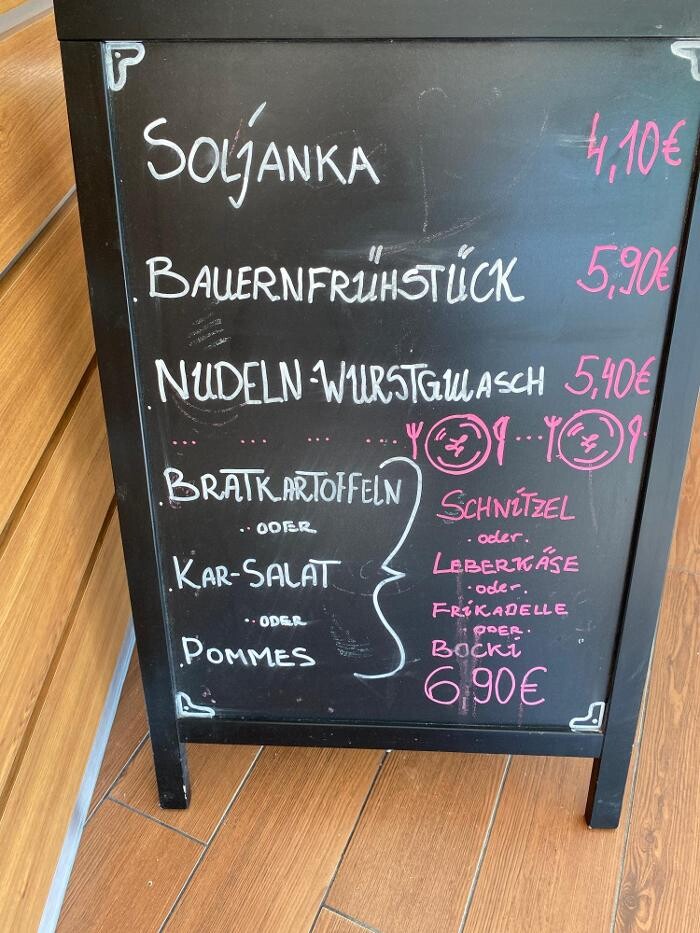 SOLJANKA 4,10€
BAUERNFRÜHSTÜCK 5,90€
NUDELN-WURSTGULASCH 5,40€
BRATKARTOFFELN
ODER
KAR-SALAT
ODER
POMMES
SCHNITZEL
oder
LEBERKÄSE
oder
FRIKADELLE
ODER
BOCKI
6,90€